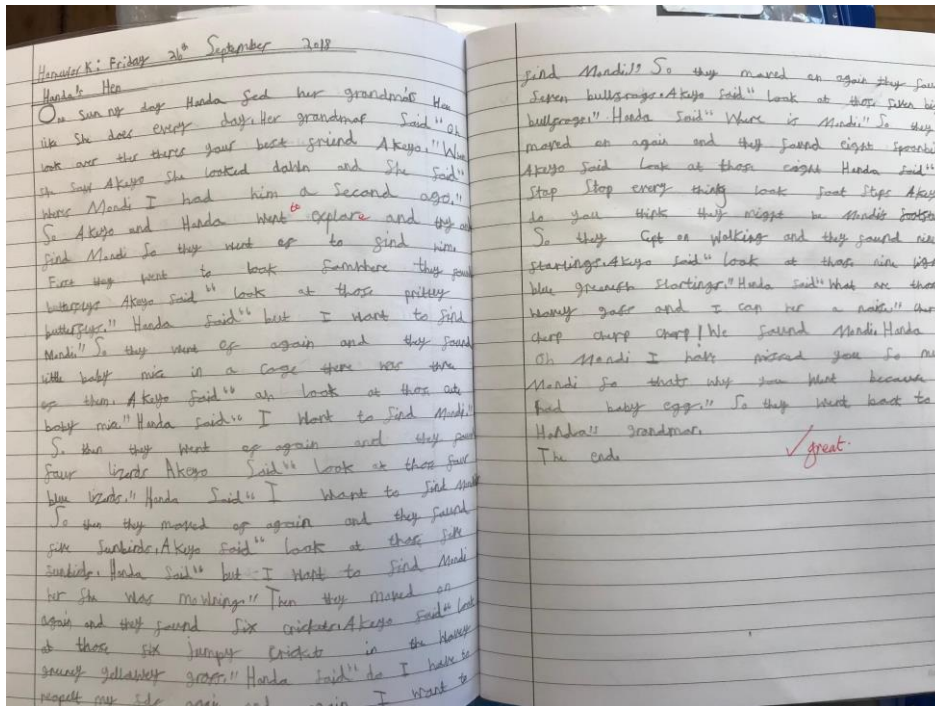 Homework: Friday 26th September 2018
Handa's Hen
One sunny day Handa fed her grandma's Hen
like She does every day. Her grandmar Said "Oh
look over ther theres your best friend Akeyo." When
she saw Akeyo She looked dawn and She Said"
wheres Mondi I had him a Second ago."
So Akeyo and Handa went to explore and try and
find Mondi So they went of to find him.
First they went to look Somwhere they found
butterflys Akeyo Said "look at those prittey
butterflys." Handa Said" but I want to find
Mondi" So they went of again and they found
little baby mice in a cage there was three
of them. Akeyo Said" ah look at thos cute
baby mice" Handa Said" I want to find Mondi."
So then they went of again and they found
four lizards Akeyo Said" look at those four
blue lizards." Handa Said" I want to find Mondi
So then they moved of again and they found
five Sunbirds. Akeyo Said" look at those five
sunbirds. Handa Said" but I want to find Mondi
her Sh was mowning." Then they moved on
again and they found Six crickets. Akeyo Said" look
at those six jumpy crickets in the
grass." Handa Said" do I have to
again and again I want to
find Mondi!" So they moved on again they found
Seven bullfrogs. Akeyo Said" look at those seven big
bullfrogs." Handa Said" Where is Mondi." So they
moved on again and they found eight
Akeyo Said look at those eight Handa Said"
Stop Stop every thing look foot Steps Akeyo
do you think they might be Mondis
So they cept on walking and they found nine
startings. Akeyo Said" look at those nine
blue greenesh startings." Handa Said" what are those
and I can her a noise."
cherp cherp cherp! We found Mondi Handa
Oh Mondi I have missed you So
Mondi So thats why you went because
had baby egg." So they went back to
Handa's grandmar.
The end.
✓ great.